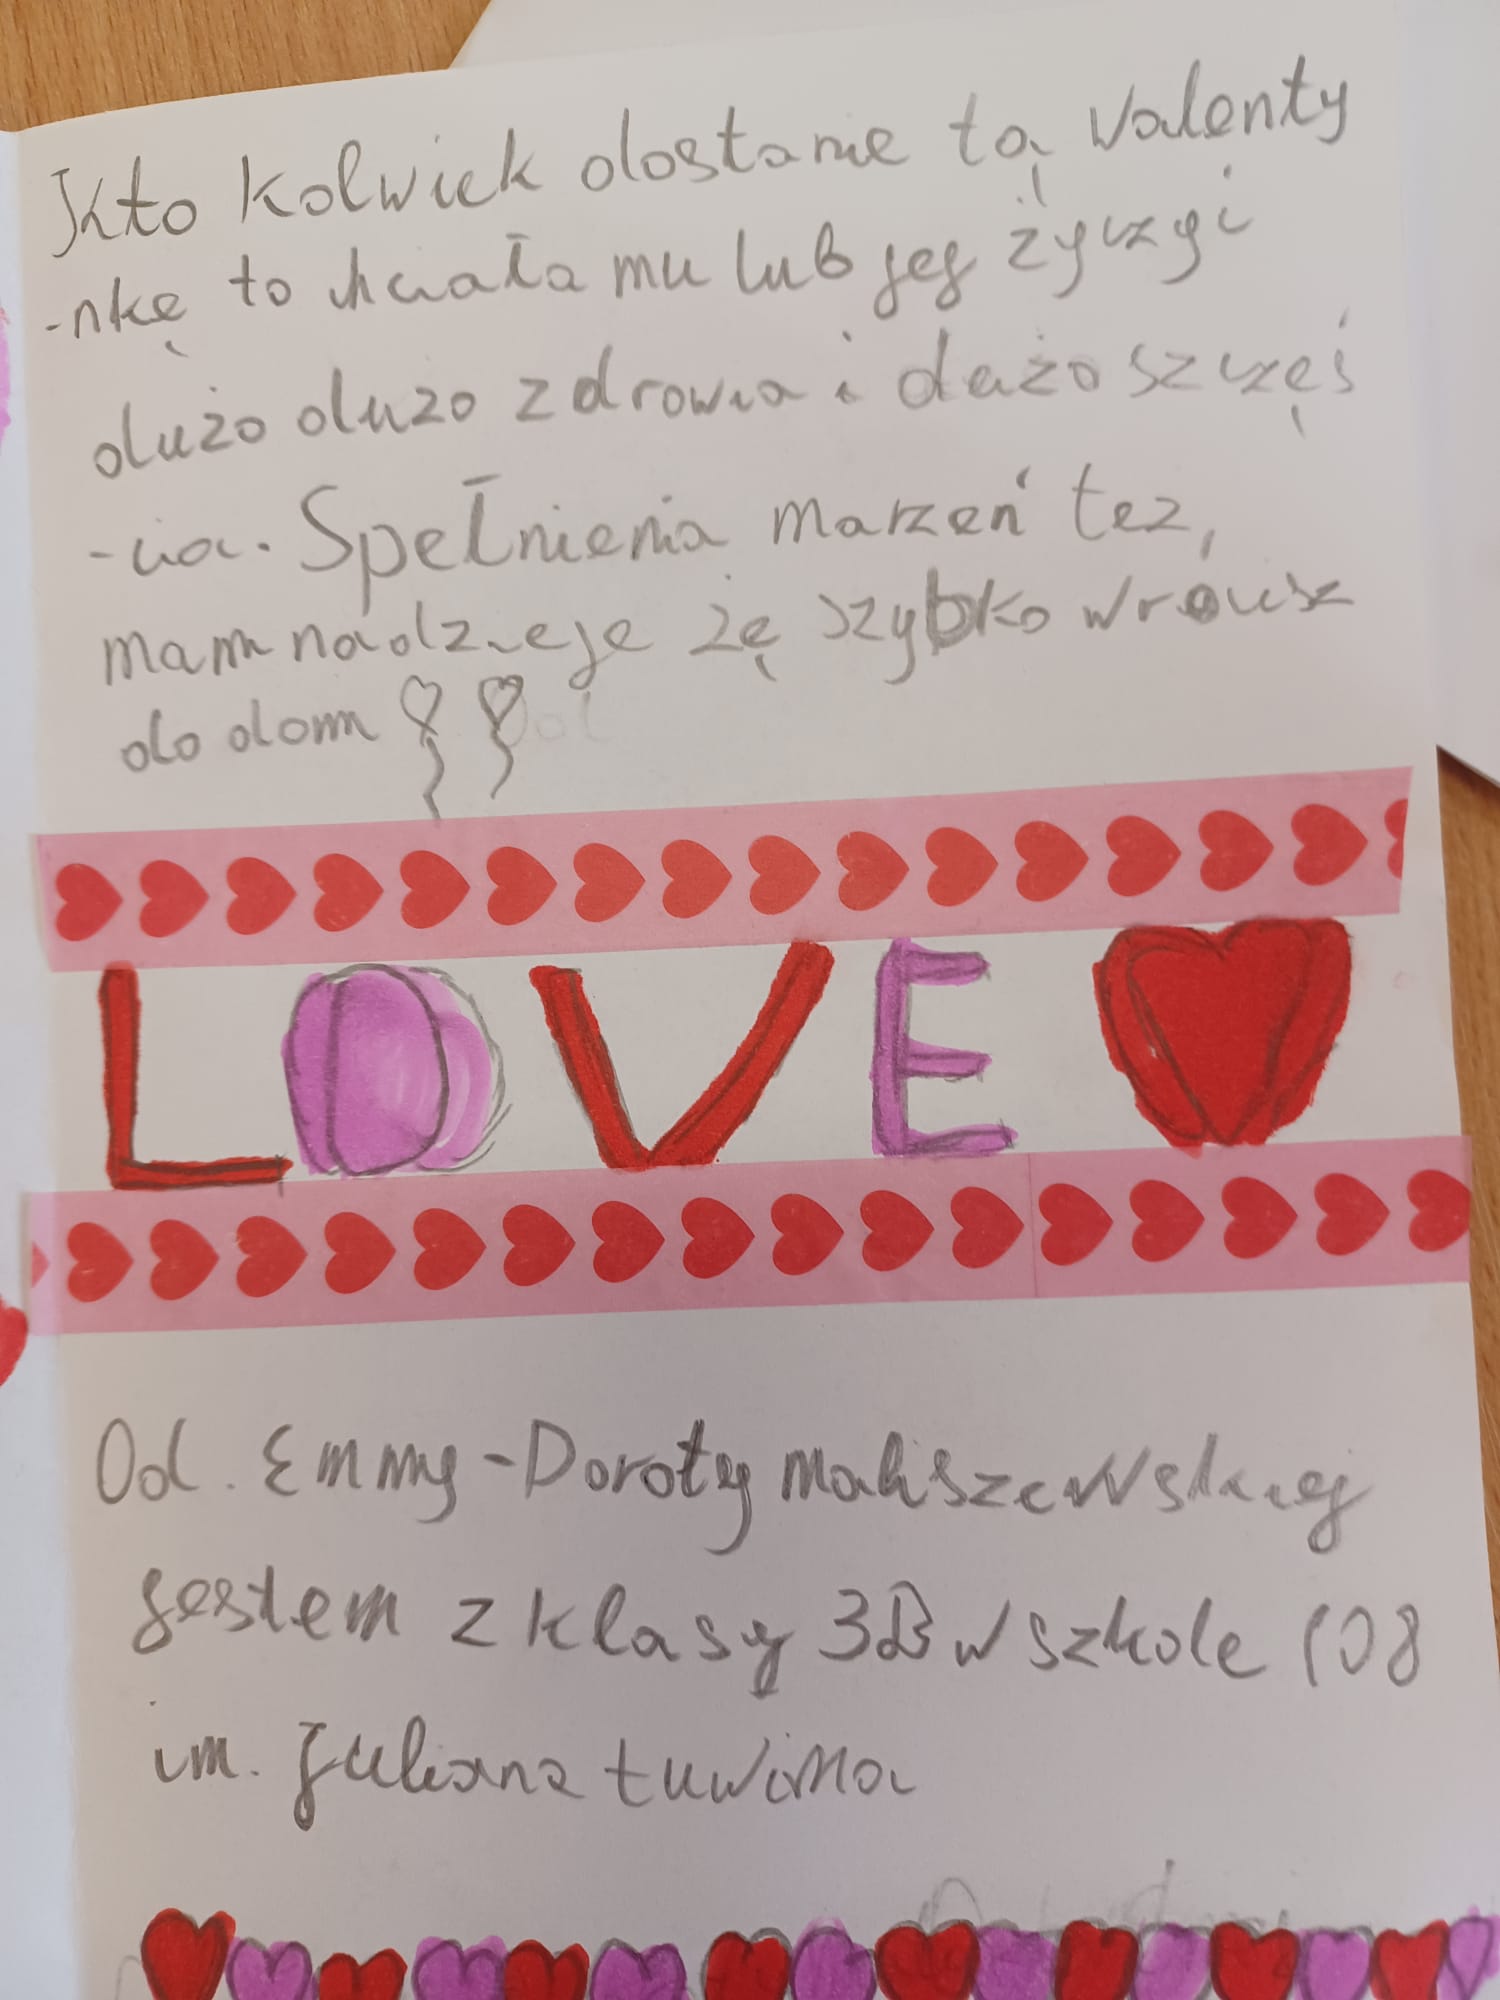 Kto kolwiek dostanie tą Walenty
-nkę to chciała mu lub jej życzyć
dużo dużo zdrowia i dużo szczęś
-cia. Spełnienia marzeń też,
mam nadzieje żę szybko wrócisz
do dom
LOVE
Od. Emmy-Doroty maliszewskiej
jestem z klasy 3B w szkole 108
im. Juliana tuwima